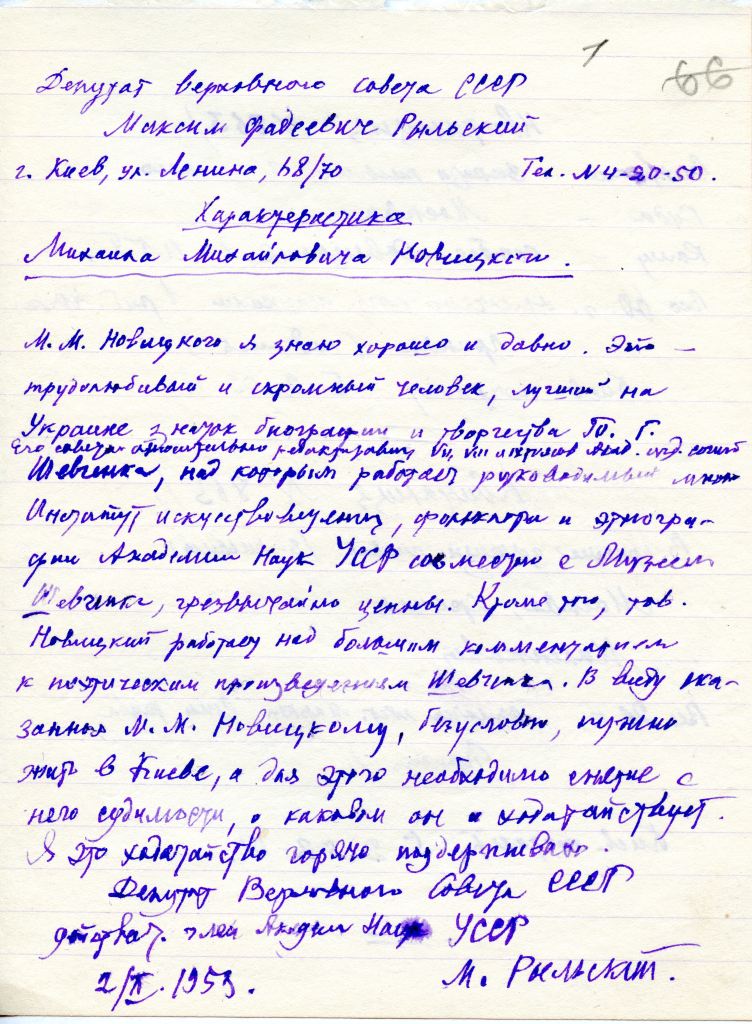 1
66
Депутат верховного совета СССР
Максим Фадеевич Рыльский
г. Киев, ул. Ленина, 68/70 Тел. N 4-20-50.
Характеристика
Михаила Михайловича Новицкого.
М. М. Новицкого я знаю хорошо и давно. Это –
трудолюбивый и скромный человек, лучший на
Украине знаток биографии и творчества Т. Г.
Его советы относительно VII, VIII Акад. изд. сочин.
Шевченка, над которым работает руководимый мною
Институт искусствоведения, фольклора и этногра-
фии Академии Наук УССР совместно с Музеем
Шевченка, чрезвычайно ценны. Кроме того, тов.
Новицкий работает над большим комментарием
к поэтическим произведениям Шевченка. В виду ска-
занного М. М. Новицкому, безусловно, нужно
жить в Киеве, а для этого необходимо снятие с
него судимости, о каковом он и ходатайствует.
Я это ходатайство горячо поддерживаю.
Депутат Верховного Совета СССР
действит. член Академии Наук УССР
2/X. 1953. М. Рыльский.